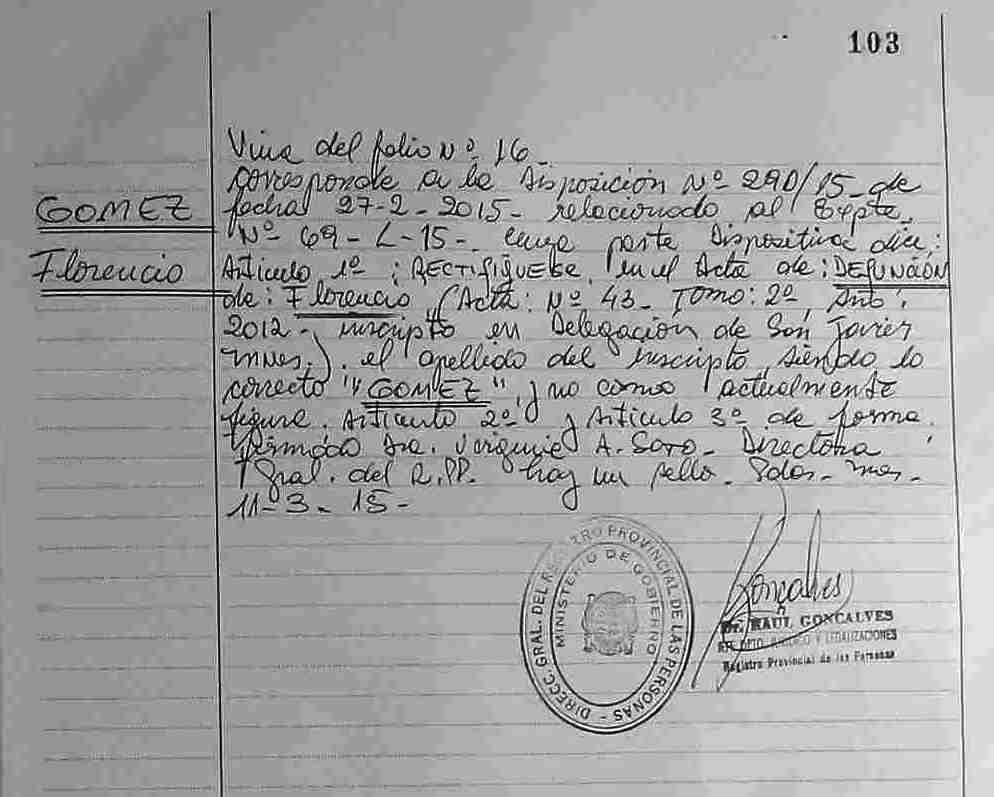 103
Viene del folio Nº 16-
Corresponde a la Disposición Nº 290/15- de
GOMEZ
fecha 27-2-2015- relacionado al Expte.
Nº 69-L-15- cuya parte Dispositiva dice:
Florencio
Artículo 1º: RECTIFIQUESE, en el Acta de: DEFUNCIÓN
de: Florencio (Acta: Nº 43- Tomo: 2º, Año:
2012- inscripto en Delegación de San Javier
Mnes.). el apellido del inscripto, siendo lo
correcto "GOMEZ", y no como actualmente
figura. Artículo 2º y Artículo 3º de forma.
Firmado Dra. A. Soto- Directora
Gral. del R.PP. hay un sello- Pdas- Mnes-
11-3-15-
DIRECC. GRAL. DEL REGISTRO PROVINCIAL DE LAS PERSONAS -
MINISTERIO DE GOBIERNO
Gonçalves
Dr. RAUL GONCALVES
DPTO. Y LEGALIZACIONES
Registro Provincial de las Personas